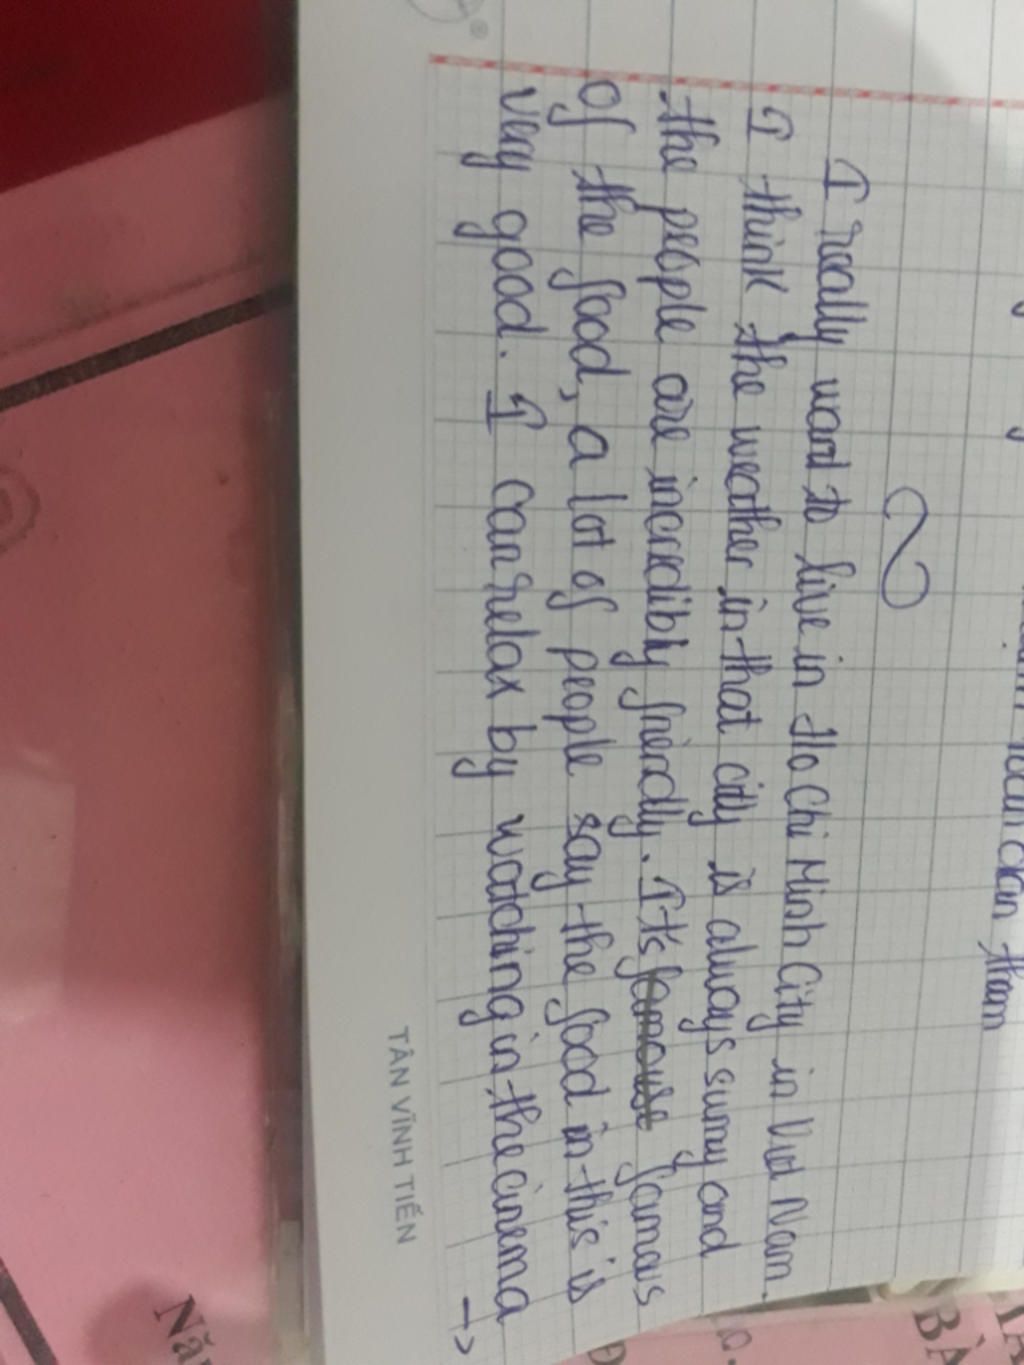 than
I really want to live in Ho Chi Minh City in Việt Nam.
I think the weather in that city is always sunny and
the people are incredibly friendly. It's famous
of the food, a lot of people say the food in this is
very good. I can relax by watching in the cinema
→
TÂN VĨNH TIẾN
BÀ